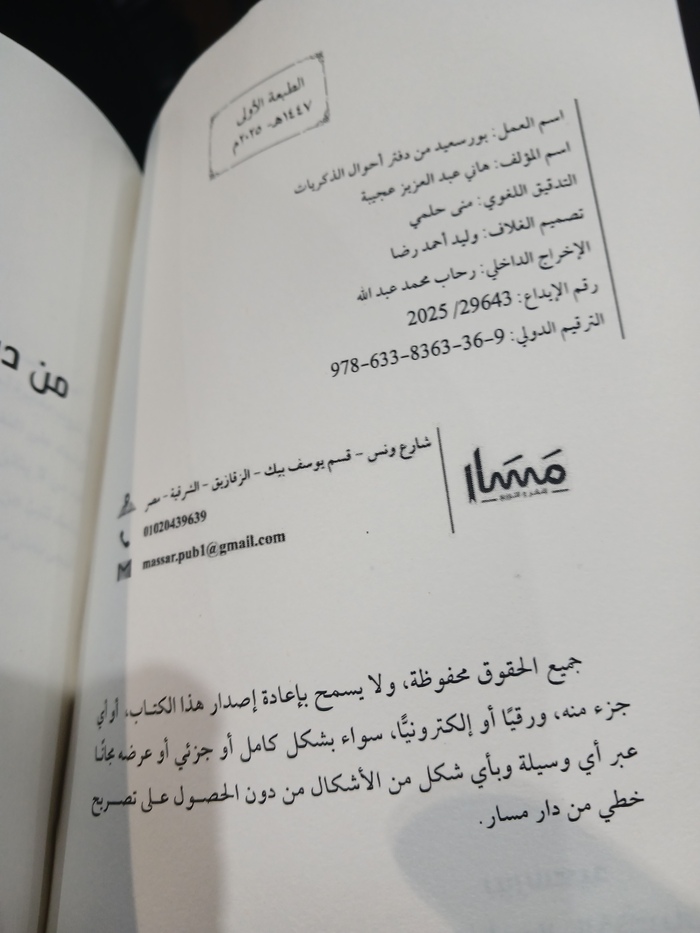 الطبعة الأولى
١٤٤٧هـ - ٢٠٢٥م
اسم العمل: بورسعيد من دفتر أحوال الذكريات
اسم المؤلف: هاني عبد العزيز عجيبة
التدقيق اللغوي: منى حلمي
تصميم الغلاف: وليد أحمد رضا
الإخراج الداخلي: رحاب محمد عبد الله
رقم الإيداع: 29643/ 2025
الترقيم الدولي: 9-36-8363-633-978
مسار
للنشر و التوزيع
شارع ونس - قسم يوسف بيك - الزقازيق - الشرقية - مصر
01020439639
massar.pub1@gmail.com
جميع الحقوق محفوظة، ولا يسمح بإعادة إصدار هذا الكتاب، أو أي
جزء منه، ورقيًا أو إلكترونيًّا، سواء بشكل كامل أو جزئي أو عرضه مجانًا
عبر أي وسيلة وبأي شكل من الأشكال من دون الحصول على تصريح
خطي من دار مسار.
من